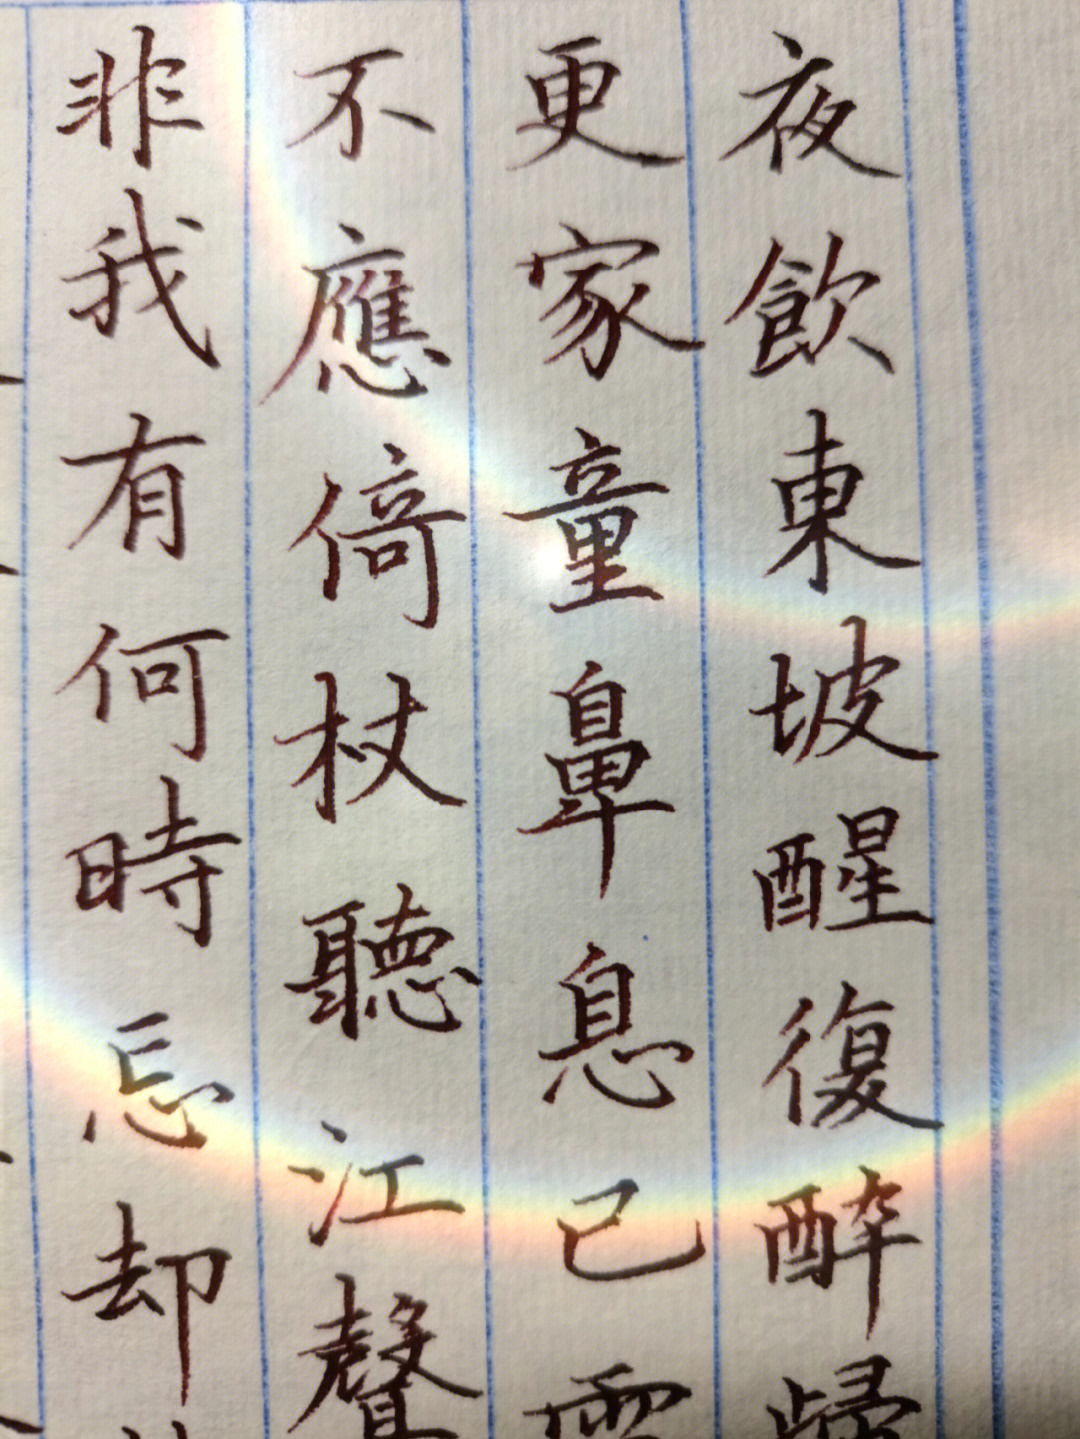 夜飲東坡醒復醉歸
更家童鼻息已雷
不應倚杖聽江聲
非我有何時忘却